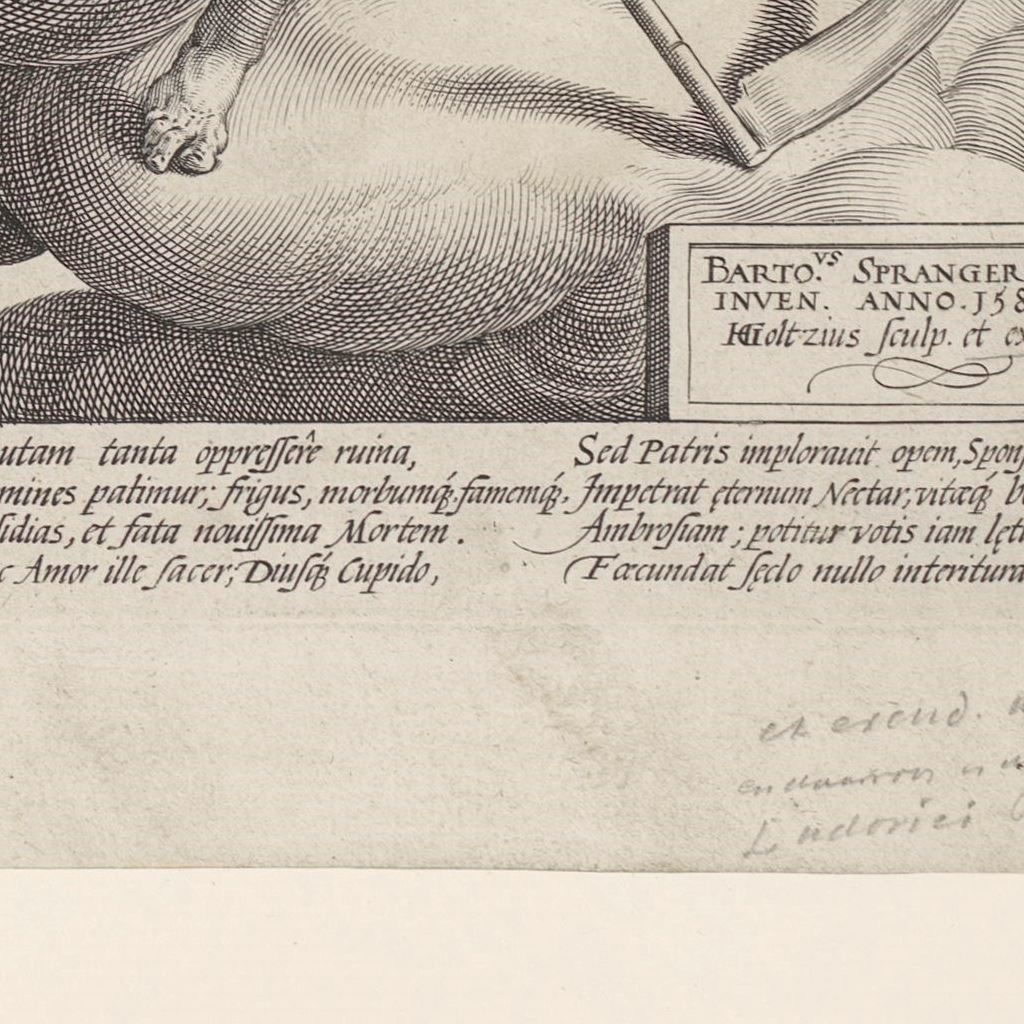 BARTO.VS SPRANGER
INVEN. ANNO. 158
HGoltzius ſculp. et ex
utam tanta oppreſſêre ruina,
mines patimur; frigus, morbumq́; famemq́;.
ſidias, et fata nouiſſima Mortem.
c Amor ille ſacer; Diuſq́; Cupido,
Sed Patris implorauit opem, Sponſ
Impetrat ęternum Nectar, vitæq́; b
Ambroſiam; potitur votis iam lęt
(Fœcundat ſęclo nullo interitura
et excud.
Ludovici